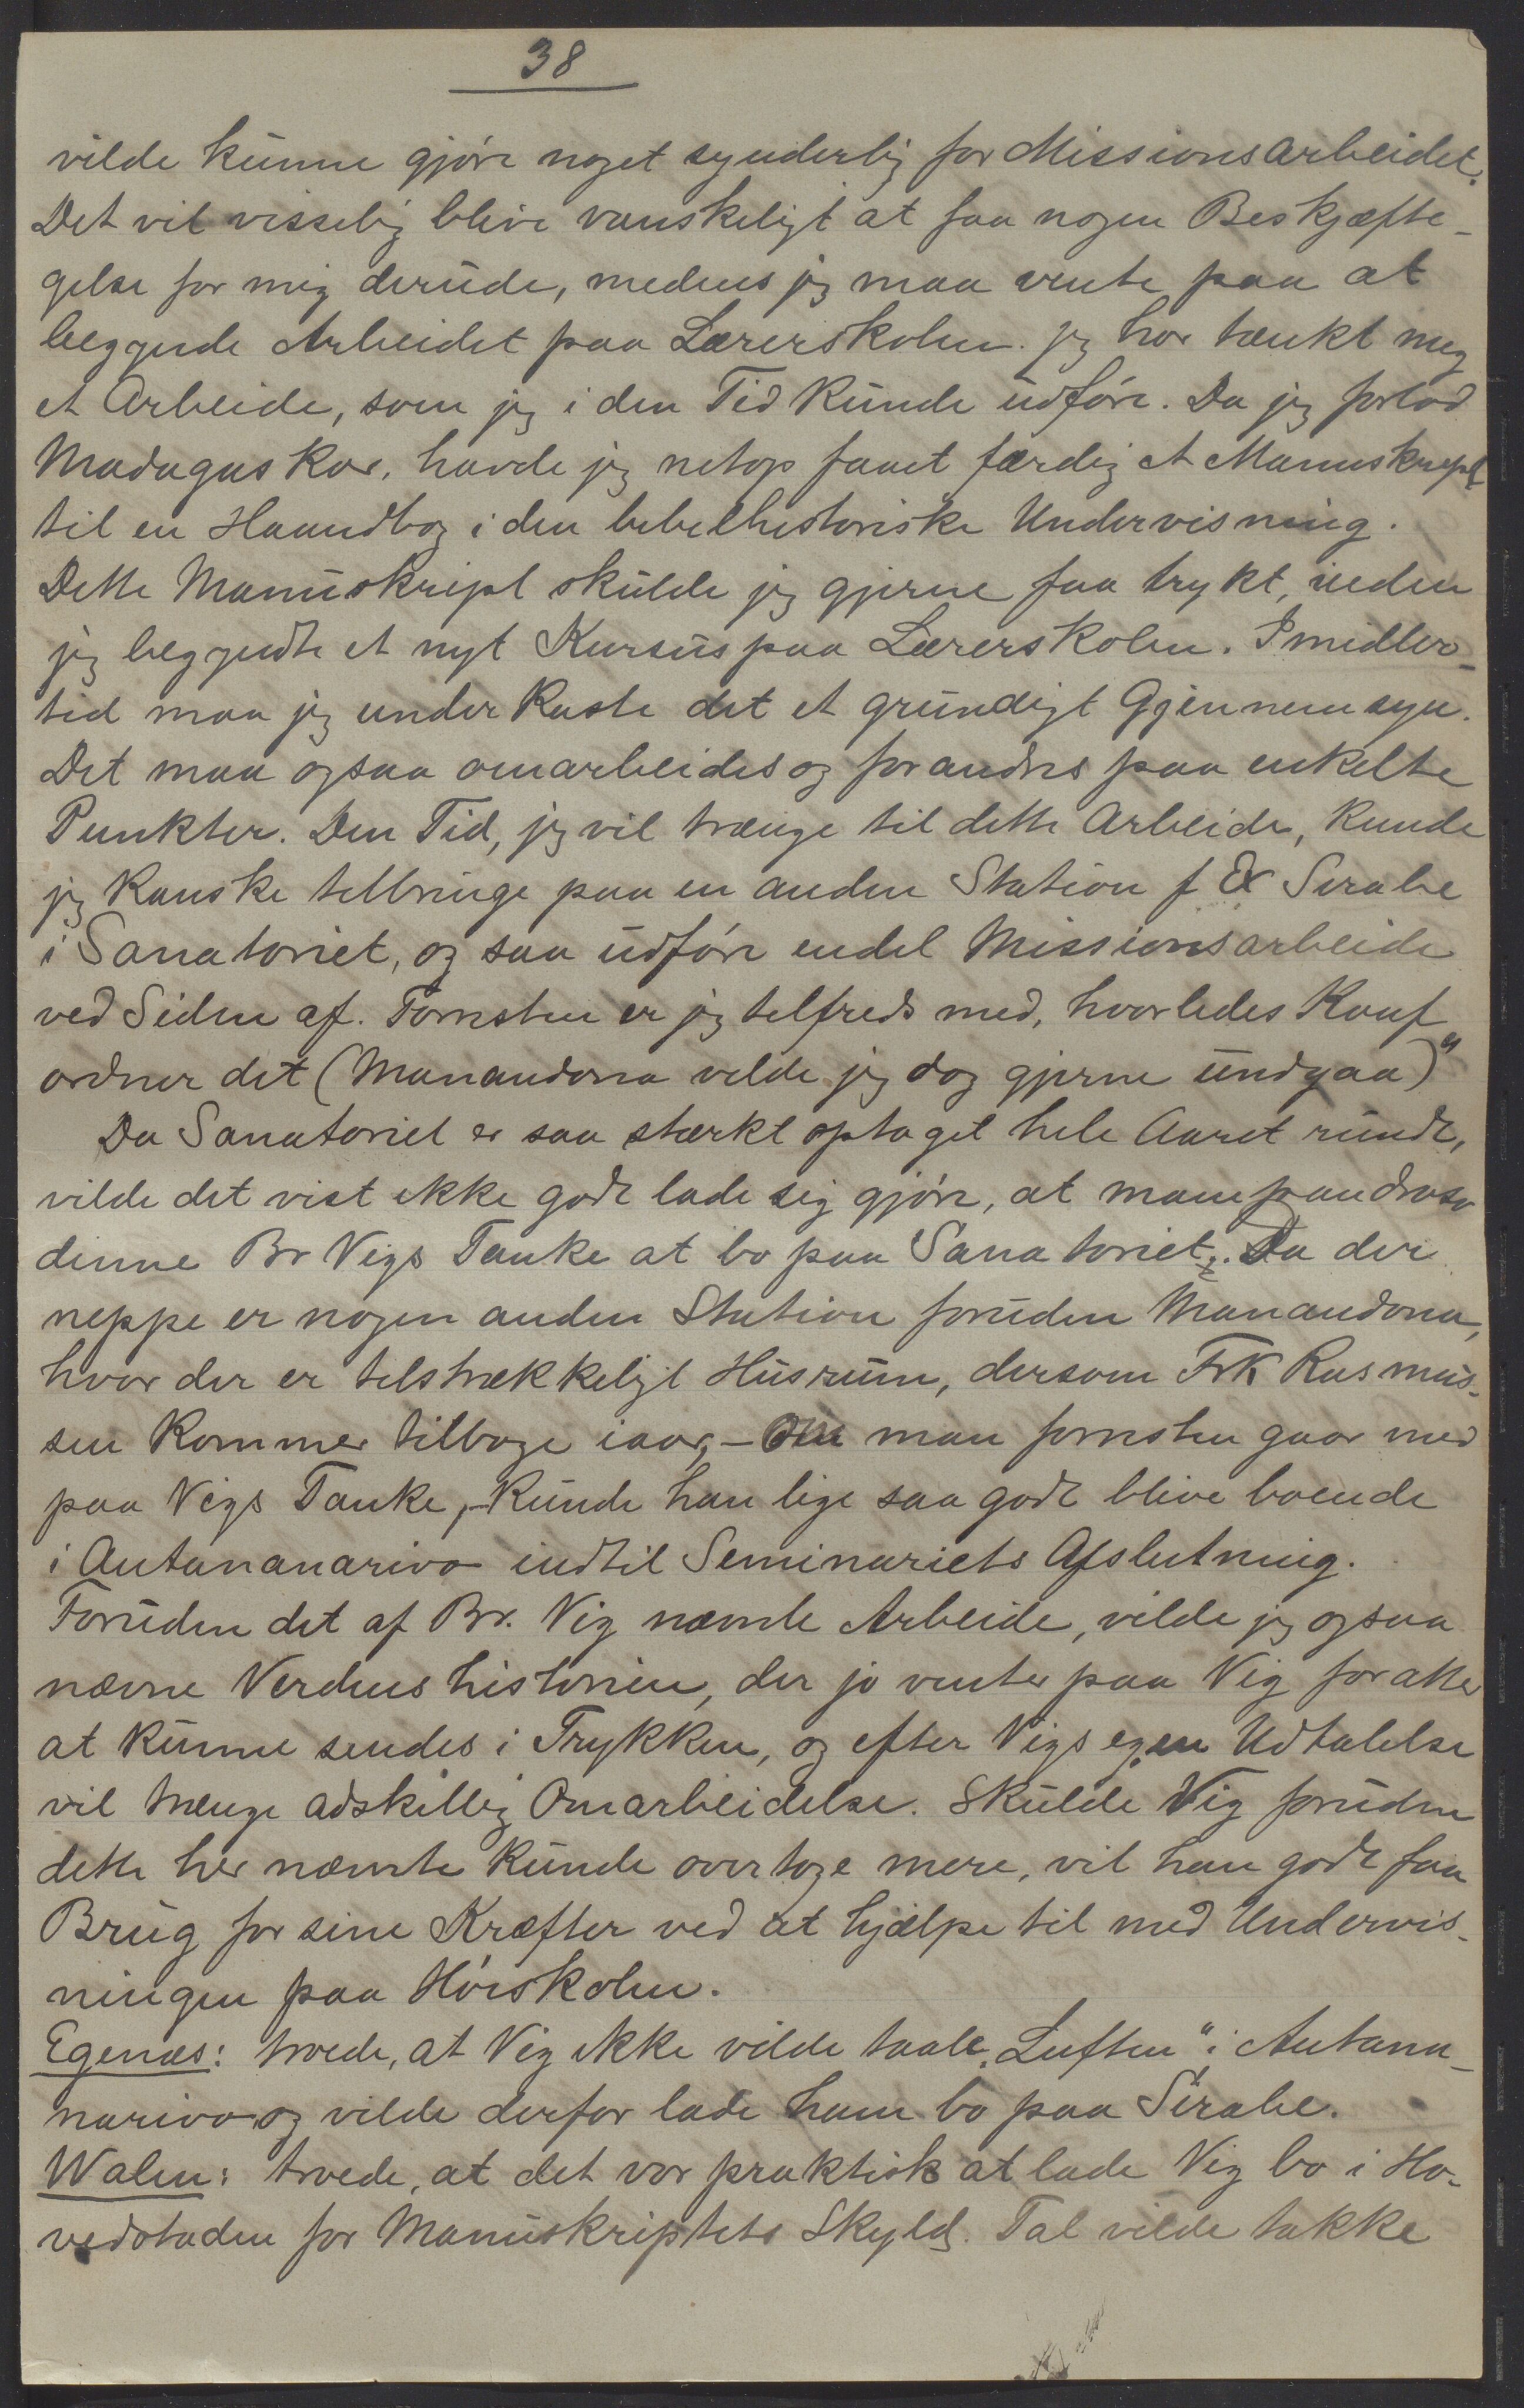 38
vilde kunne gjöre noget synderlig for Missionsarbeidet.
Det vil visselig blive vanskeligt at faa nogen Beskjæfte-
gelse for mig derude, medens jeg maa vente paa at
begynde Arbeidet paa Lærerskolen. Jeg har tænkt mig
et Arbeide, som jeg i den Tid kunde udföre. Da jeg forlod
Madagaskar, havde jeg netop faaet færdig et Manuskript
til en Haandbog i den bibelhistoriske Undervisning.
Dette Manuskript skulde jeg gjerne faa trykt, inden
jeg begyndte et nyt Kursus paa Lærerskolen. Imidler-
tid maa jeg underkaste det et grundigt Gjennemsyn.
Det maa ogsaa omarbeides og forandres paa enkelte
Punkter. Den Tid, jeg vil trænge til dette Arbeide, kunde
jeg kanske tilbringe paa en anden Station f Ex Sirabe
i Sanatoriet, og saa udföre endel Missionsarbeide
ved Siden af. Forresten er jeg tilfreds med, hvorledes Konf
ordner det (Manandona vilde jeg dog gjerne undgaa)"
Da Sanatoriet er saa stærkt optaget hele Aaret rundt,
vilde det vist ikke godt lade sig gjöre, at mampandroso
denne Br Vigs Tanke at bo paa Sanatoriet. Da der
neppe er nogen anden Station foruden Manandona,
hvor der er tilstrækkeligt Husrum, dersom Frk Rasmus-
sen kommer tilbage iaar, – om man forresten gaar med
paa Vigs Tanke, – kunde han lige saa godt blive boende
i Antananarivo indtil Seminariets Afslutning.
Foruden det af Br. Vig nævnte Arbeide, vilde jeg ogsaa
nævne Verdenshistorien, der jo venter paa Vig for atter
at kunne sendes i Trykken, og efter Vigs egen Udtalelse
vil trænge adskillig Omarbeidelse. Skulde Vig foruden
dette her nævnte kunde overtage mere, vil han godt faa
Brug for sine Kræfter ved at hjælpe til med Undervis-
ningen paa Höiskolen.
Egenæs: troede, at Vig ikke vilde taale „Luften" i Antana-
narivo og vilde derfor lade ham bo paa Sirabe.
Walen: troede, at det var praktisk at lade Vig bo i Ho-
vedstaden for Manuskriptets Skyld. Tal vilde takke